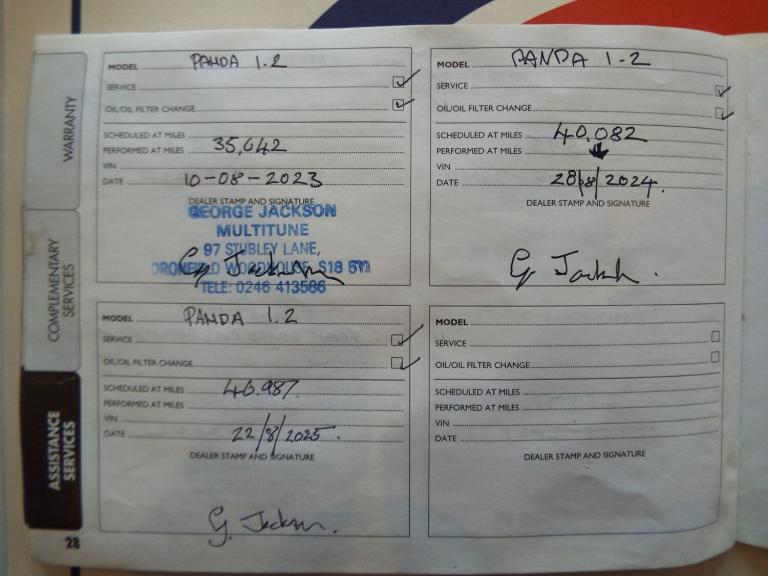 WARRANTY
COMPLEMENTARY
SERVICES
ASSISTANCE
SERVICES
MODEL PANDA 1.2
SERVICE
OIL/OIL FILTER CHANGE
SCHEDULED AT MILES
PERFORMED AT MILES 35,642
VIN
DATE 10-08-2023
DEALER STAMP AND SIGNATURE
GEORGE JACKSON
MULTITUNE
97 STUBLEY LANE,
DRONFIELD WOODHOUSE, S18
TELE: 0246 413586
G Jackson
MODEL PANDA 1-2
SERVICE
OIL/OIL FILTER CHANGE
SCHEDULED AT MILES 40,082
PERFORMED AT MILES
VIN
DATE 28/8/2024.
DEALER STAMP AND SIGNATURE
G Jackson.
MODEL PANDA 1.2
SERVICE
OIL/OIL FILTER CHANGE
SCHEDULED AT MILES 40.987.
PERFORMED AT MILES
VIN
DATE 22/8/2025.
DEALER STAMP AND SIGNATURE
G. Jackson.
MODEL
SERVICE
OIL/OIL FILTER CHANGE
SCHEDULED AT MILES
PERFORMED AT MILES
VIN
DATE
DEALER STAMP AND SIGNATURE
28